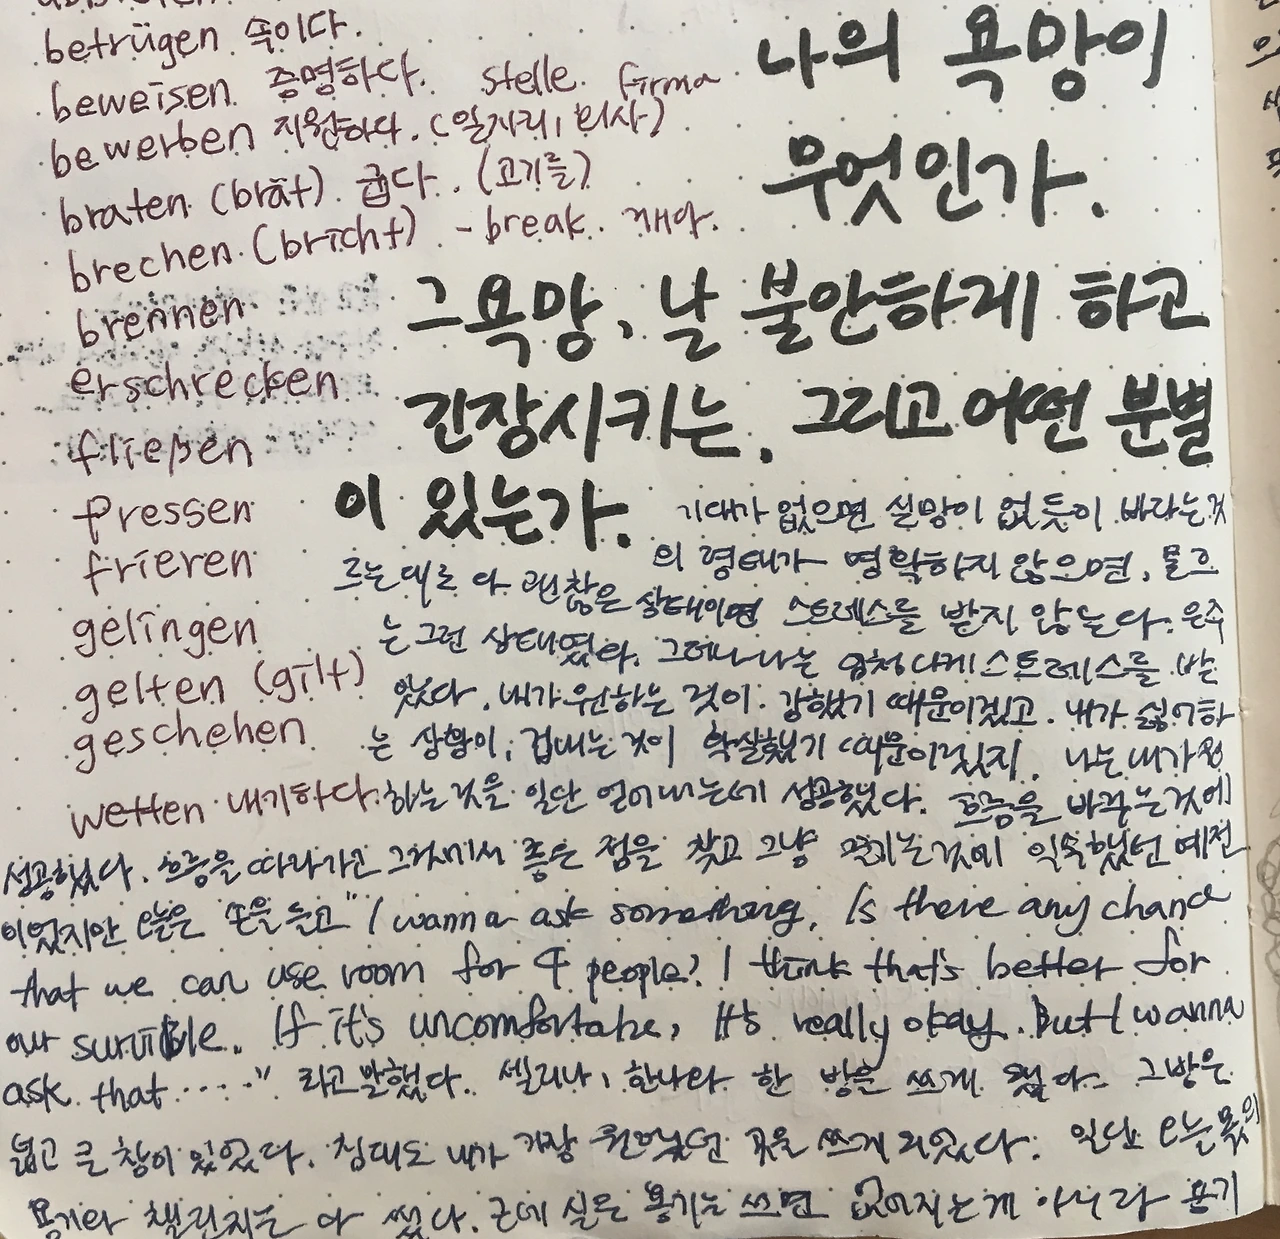 betrügen 속이다.
beweisen 증명하다. stelle firma
bewerben 지원하다. (일자리, 회사)
braten (brät) 굽다. (고기를)
brechen (bricht) - break 깨다.
brennen
erschrecken
fließen
fressen
frieren
gelingen
gelten (gilt)
geschehen
wetten 내기하다.
나의 욕망이
무엇인가.
그 욕망, 날 불안하게 하고
긴장시키는, 그리고 어떤 분별
이 있는가.
기대가 없으면 실망이 없듯이 바라는 것
의 형태가 명확하지 않으면, 물흐
르는대로 다 괜찮은 상태이면 스트레스를 받지 않는다. 은주
는 그런 상태였다. 그러나 나는 엄청나게 스트레스를 받
았다. 내가 원하는 것이 강했기 때문이겠고, 내가 싫어하
는 상황이, 겁내는 것이 확실했기 때문이겠지. 나는 내가 원
하는 것을 일단 얻어내는데 성공했다. 흐름을 바꾸는것에
성공했다. 흐름을 따라가고 그거에서 좋은 점을 찾고 그냥 즐기는것에 익숙했던 예전
이었지만 오늘은 손을 들고 "I wanna ask something, Is there any chance
that we can use room for 4 people? I think that's better for
our survible. If it's uncomfortable, It's really okay. But I wanna
ask that ....." 라고 말했다. 셀리나, 한나와 한 방을 쓰게 됐다. 그 방은
넓고 큰 창이 있었다. 침대도 내가 가장 원했던 곳을 쓰게 되었다. 일단 오늘 몫의
용기와 챌린지는 다 썼다. 근데 실은 용기는 쓰면 없어지는게 아니라 용기